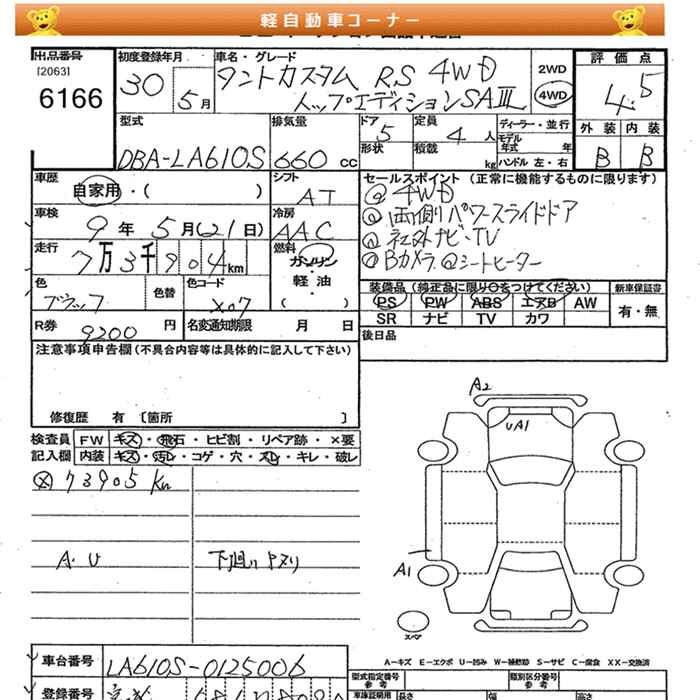 軽自動車コーナー
出品番号
[2063]
6166
初度登録年月
30 5月
車名・グレード
タントカスタム RS 4WD
トップエディションSAⅢ
2WD
4WD
評価点
4.5
外装 内装
B B
型式
DBA-LA610S
排気量
660 cc
ドア
5
形状
定員
4 人
積載
kg
ディーラー・並行
モデル
年式 年
ハンドル 左・右
車歴
自家用・( )
シフト
AT
車検
9年 5月(21日)
冷房
AAC
走行
7万3千904km
燃料
ガソリン
・
軽油
・
( )
色
ブラック
色替
色コード
X07
R券
9200 円
名変通知期限 月 日
セールスポイント (正常に機能するものに限ります)
4WD
両側パワースライドドア
社外ナビ・TV
Bカメラ シートヒーター
装備品 (純正品に限り○をつけてください)
PS PW ABS エアB AW
SR ナビ TV カワ
新車保証書
有・無
後日品
注意事項申告欄 (不具合内容等は具体的に記入して下さい)
修復歴 有 〔箇所 〕
検査員
記入欄
FW キズ・飛石・ヒビ割・リペア跡・×要
内装 キズ・汚れ・コゲ・穴・スレ・キレ・破レ
73905 Km
A・U
下廻り サビリ
A2
UA1
A1
スペア
A－キズ E－エクボ U－凹み W－補修跡 S－サビ C－腐食 XX－交換済
車台番号
LA610S-0125006
登録番号
型式指定番号
参考
類別区分番号
参考
車庫証明用
長さ
幅
高さ